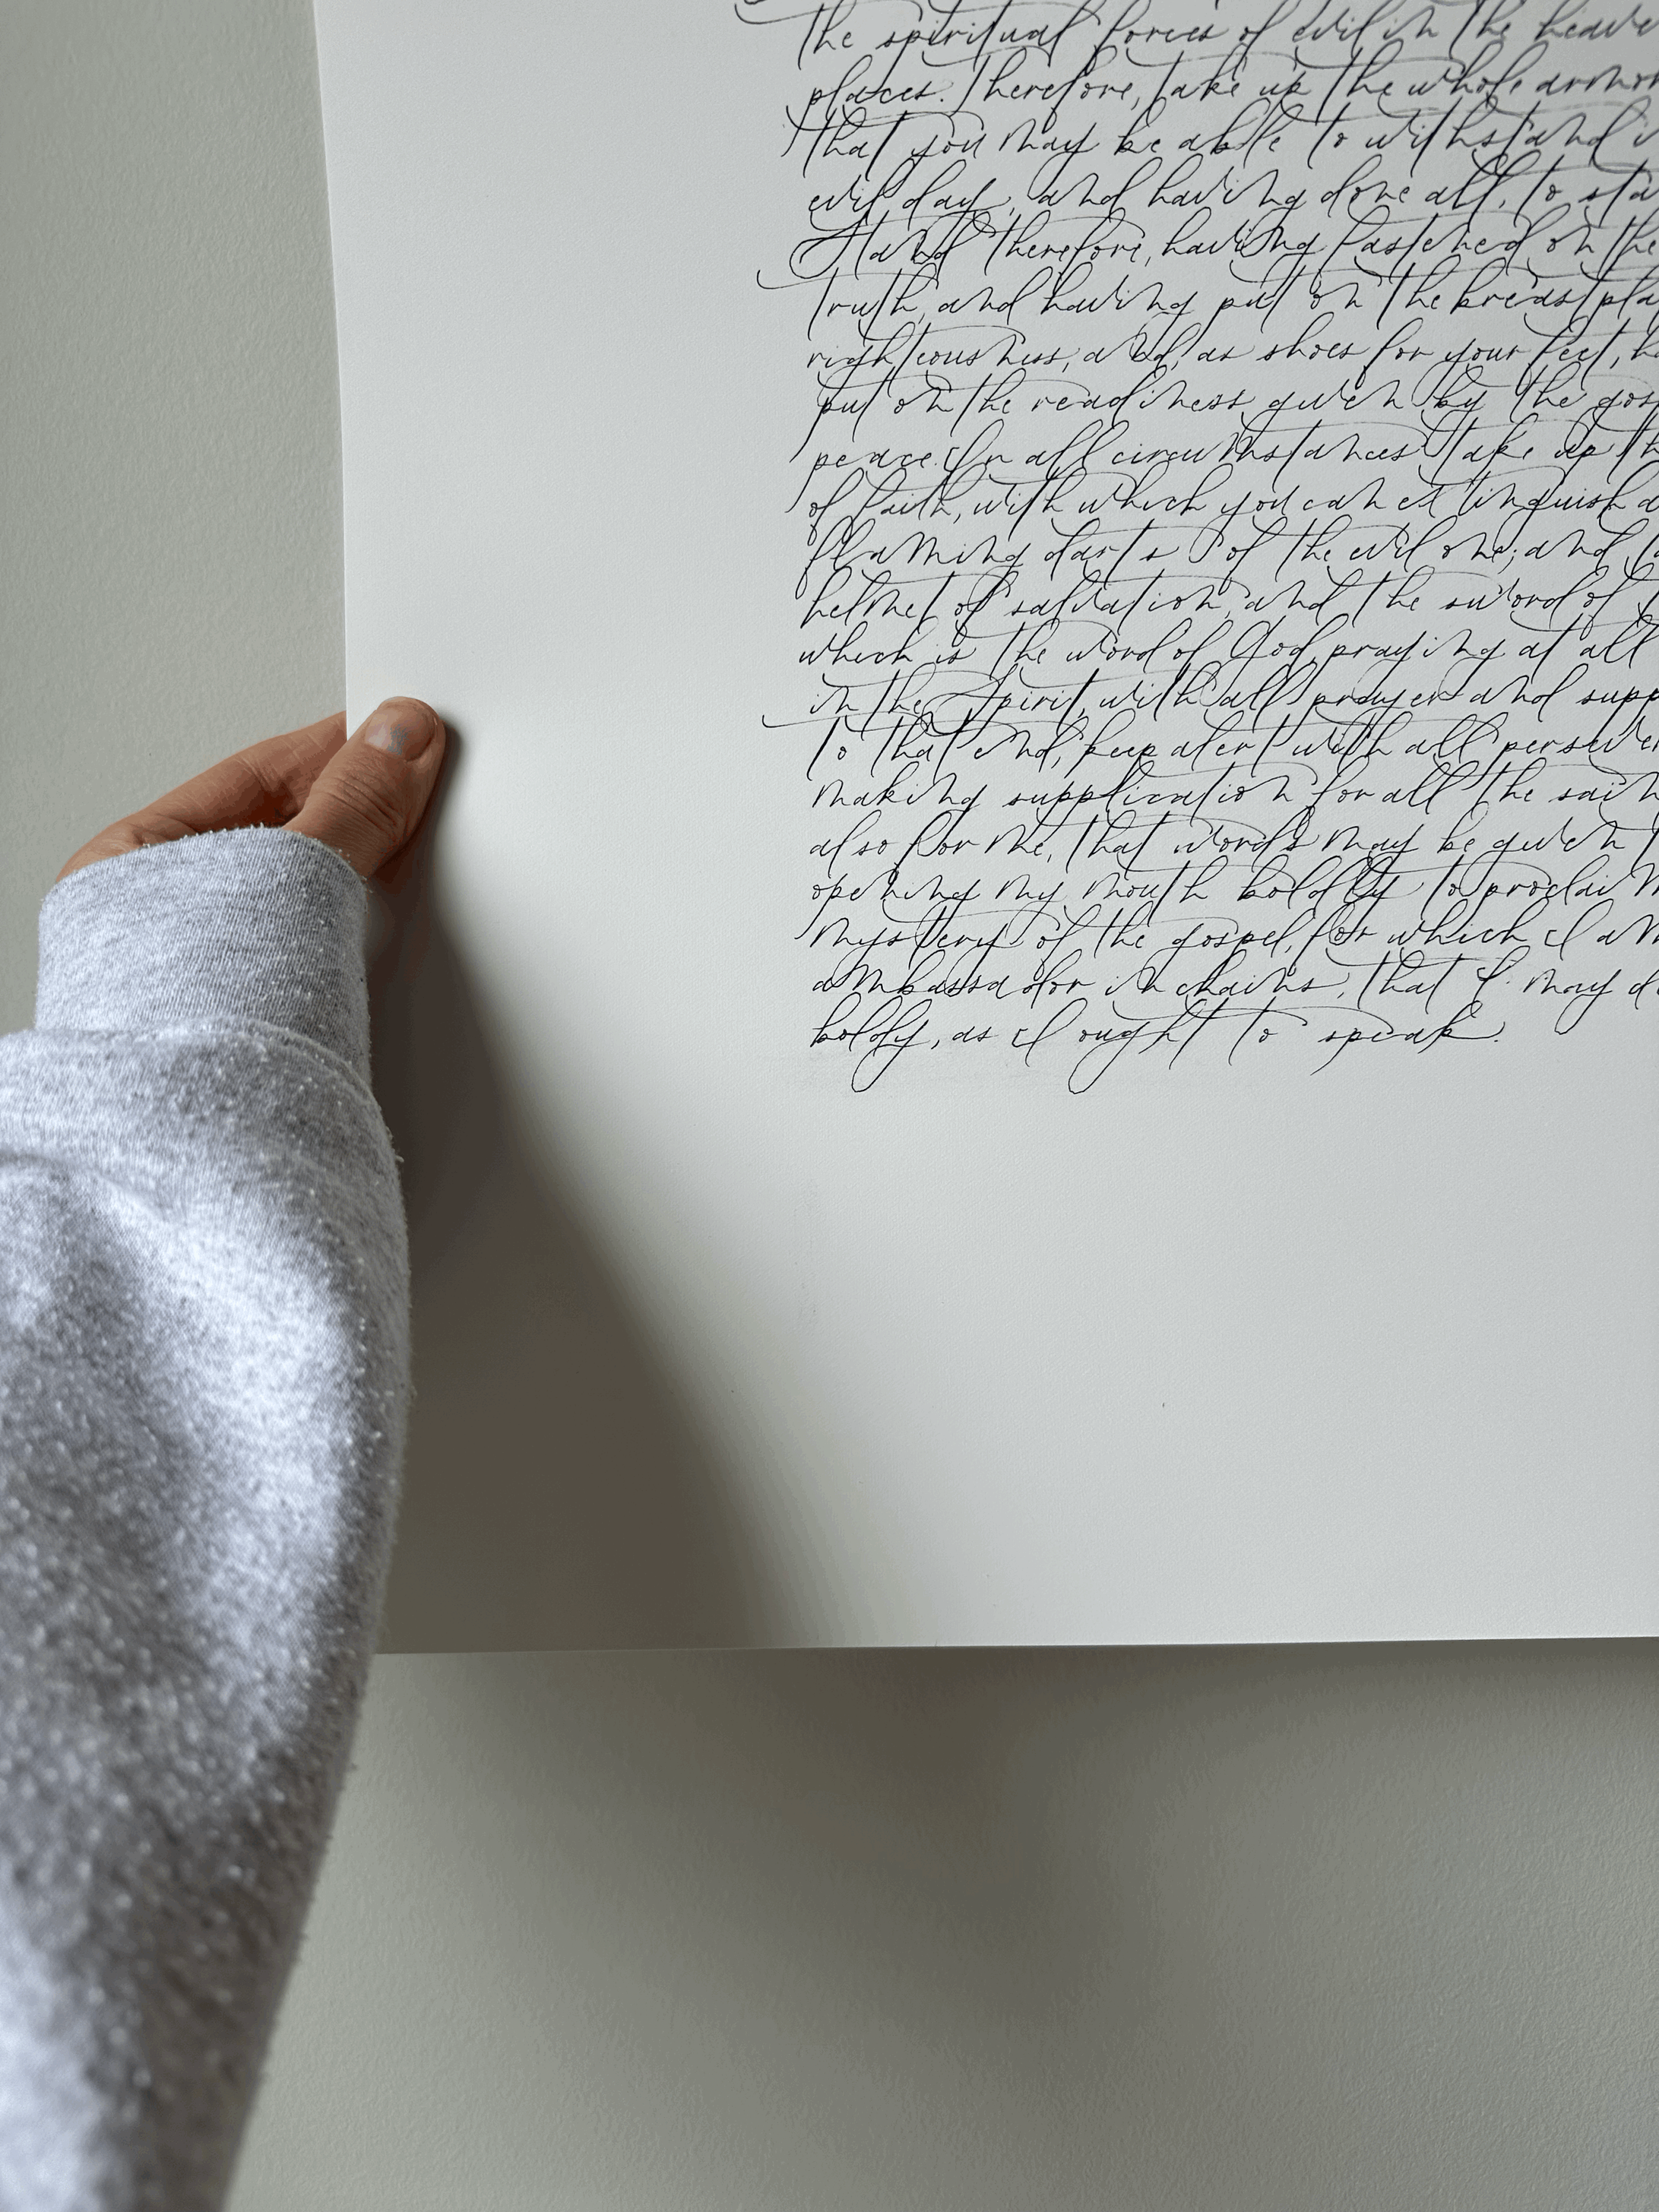 the spiritual forces of evil in the heave
places. Therefore, take up the whole armor
that you may be able to withstand i
evil day, and having done all, to sta
Stand therefore, having fastened on the
truth, and having put on the breastpla
righteousness, and, as shoes for your feet, h
put on the readiness given by the gos
peace. In all circumstances take up th
of faith, with which you can extinguish a
flaming darts of the evil one; and ta
helmet of salvation, and the sword of
which is the word of God, praying at all
in the Spirit, with all prayer and supp
To that end, keep alert with all persever
making supplication for all the sain
also for me, that words may be given t
opening my mouth boldly to proclaim
mystery of the gospel, for which I am
ambassador in chains, that I may de
boldly, as I ought to speak.